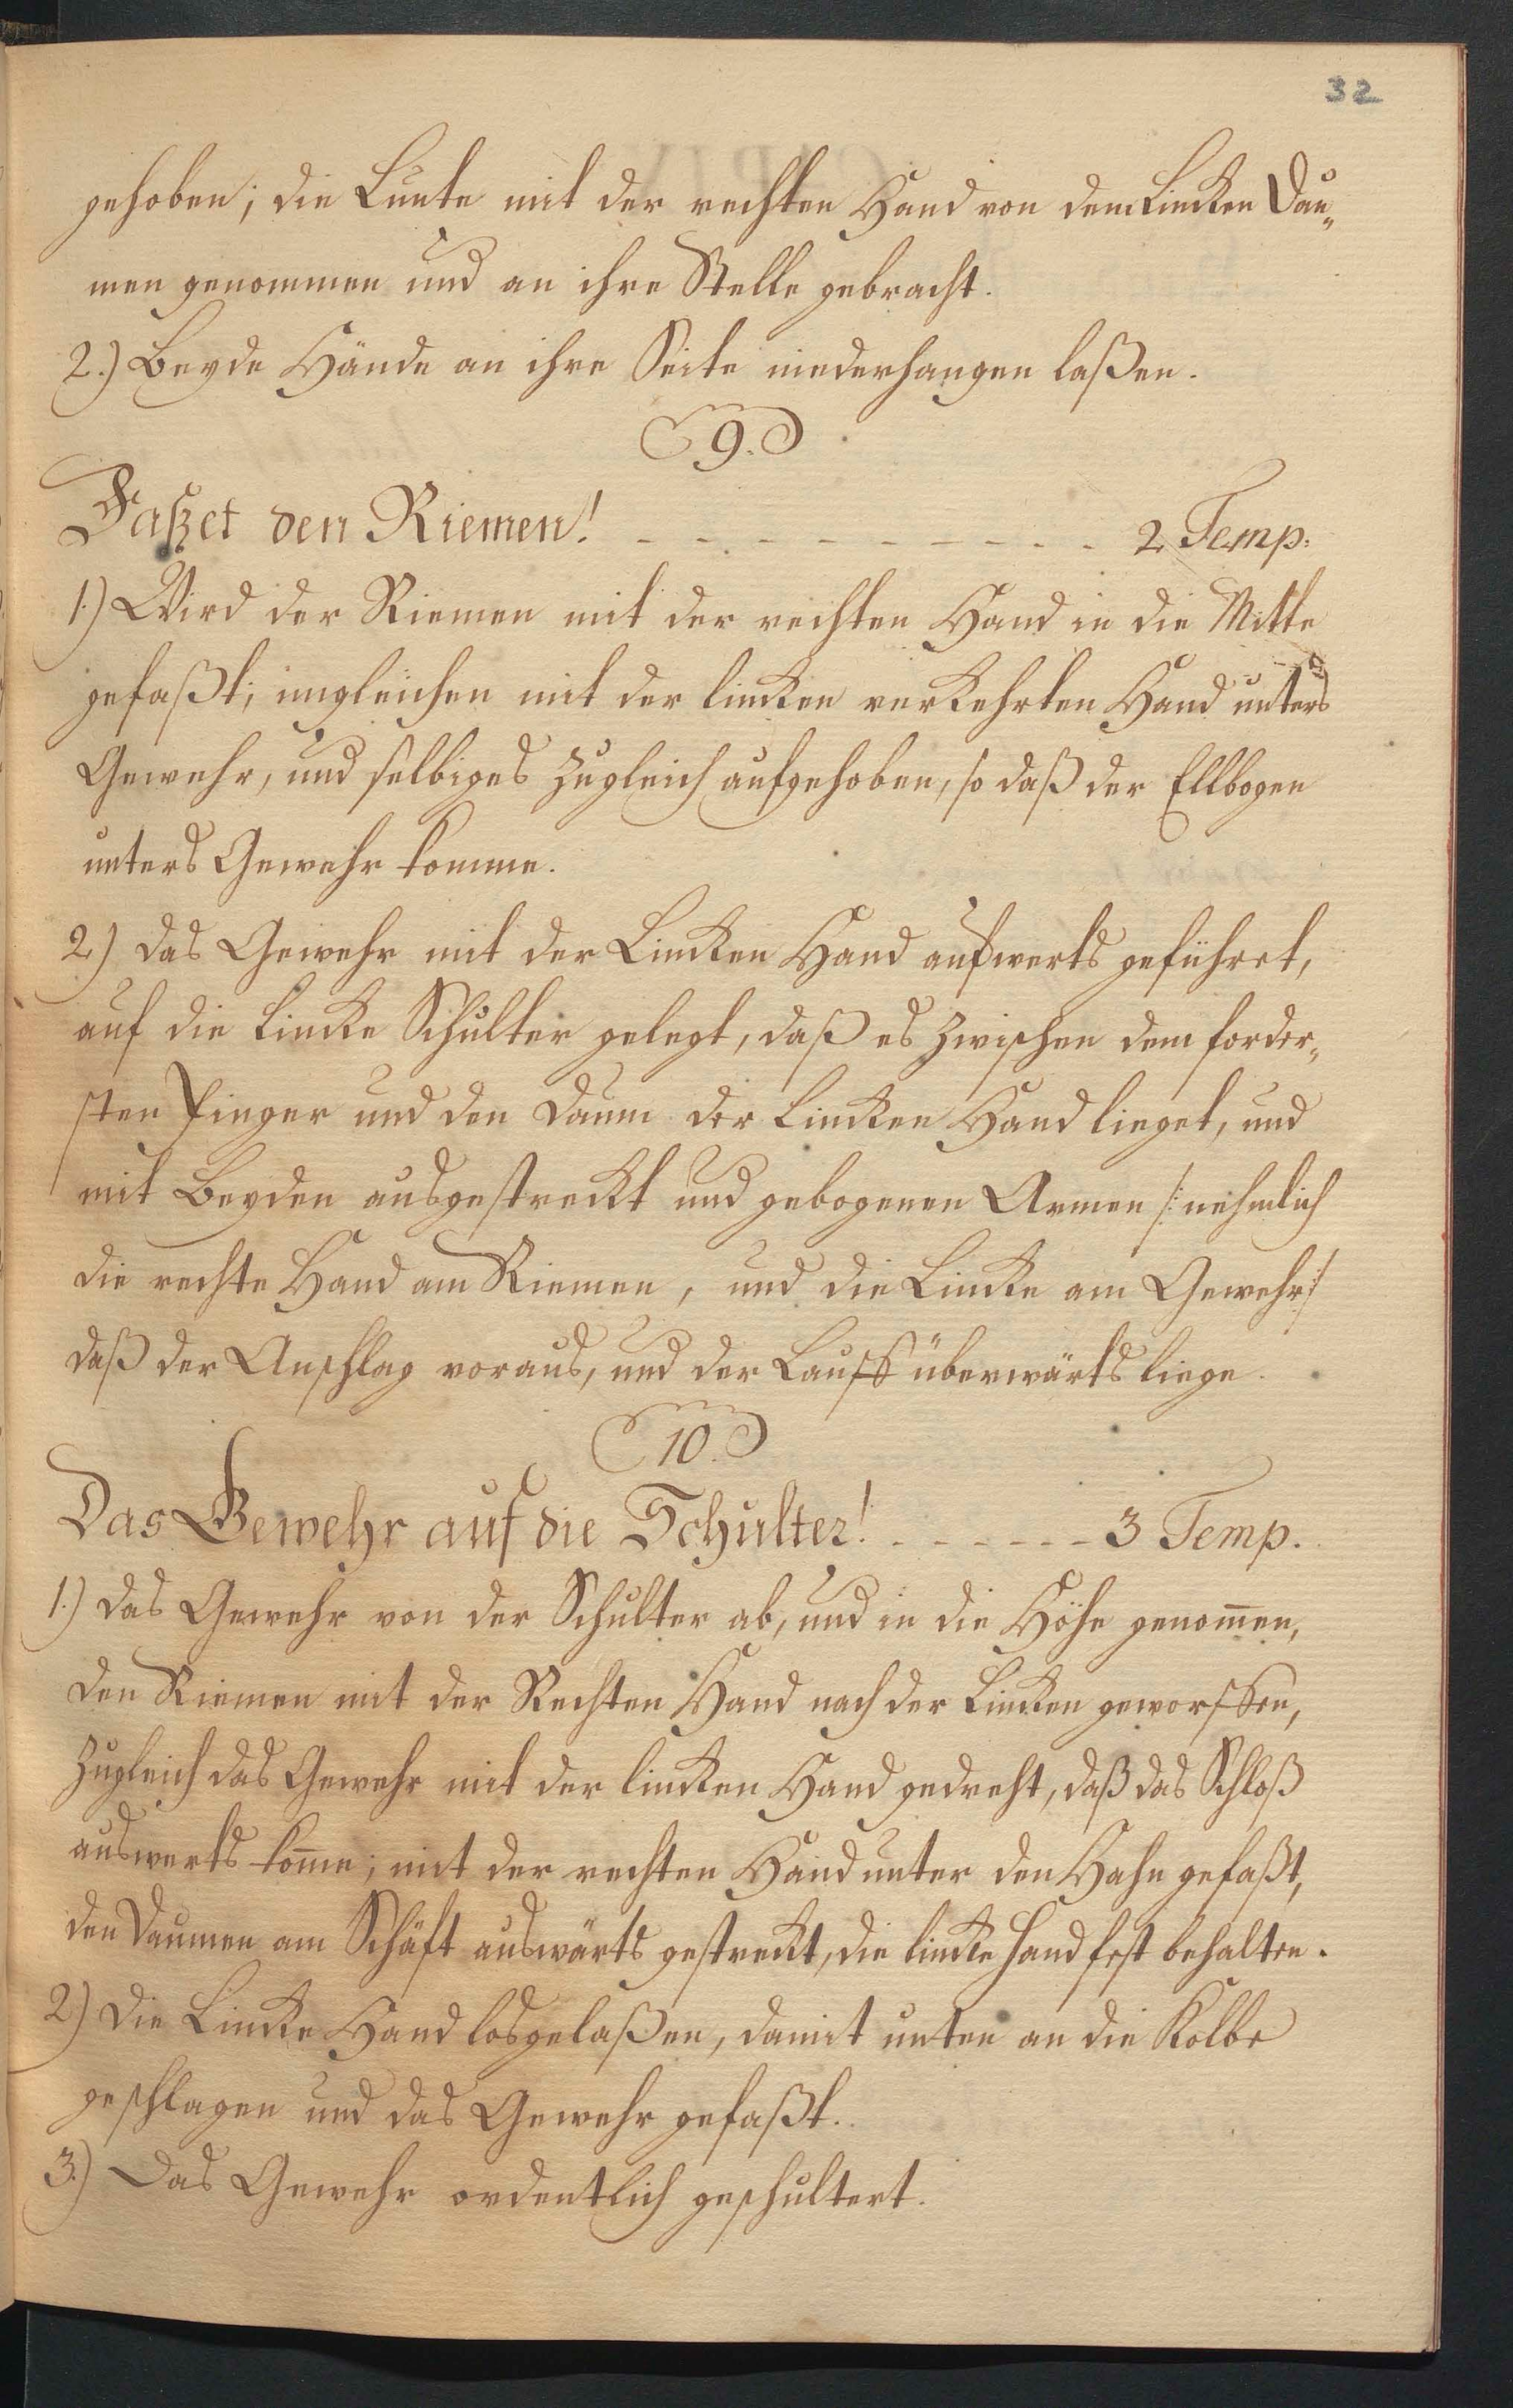 32
gehoben; die Lunte mit der rechten Hand von dem Lincken Dau„
men genommen und an ihre Stelle gebracht.
2.) Beyde Hände an ihre Seite niederhangen laßen.
9.
Faßet den Riemen! - - - - - - - - - - 2 Temp:
1.) Wird der Riemen mit der rechten Hand in die Mitte
gefaßt; imgleichen mit der lincken verkehrten Hand unters
Gewehr, und selbiges zugleich aufgehoben, so daß der Ellbogen
unters Gewehr komme.
2.) das Gewehr mit der Lincken Hand aufwerts geführet,
auf die Lincke Schulter gelegt, daß es zwischen dem forder„
sten Finger und den Daum der Lincken Hand lieget, und
mit Beyden ausgestreckt und gebogenen Armen /: nehmlich
die rechte Hand am Riemen, und die Lincke am Gewehr :/
daß der Anschlag voraus, und der Lauff überwärts liege.
10.
Das Gewehr auf die Schulter! - - - - - - 3 Temp.
1.) das Gewehr von der Schulter ab, und in die Höhe genom̄en,
den Riemen mit der Rechten Hand nach der Lincken geworffen,
zugleich das Gewehr mit der lincken Hand gedreht, daß das Schloß
auswerts kom̄e; mit der rechten Hand unter den Hahn gefaßt,
den Daumen am Schäft auswärts gestreckt, die lincke Hand fest behalten.
2.) die Lincke Hand losgelaßen, damit unten an die Kolbe
geschlagen und das Gewehr gefaßt.
3.) Das Gewehr ordentlich geschultert.